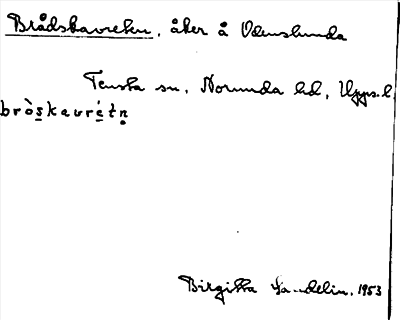 Brådskavreten, åker å Odenslunda
Tensta sn, Norunda hd, Upps.l.
bròs̲kavrét̲n̥
Birgitta Sandelin, 1953